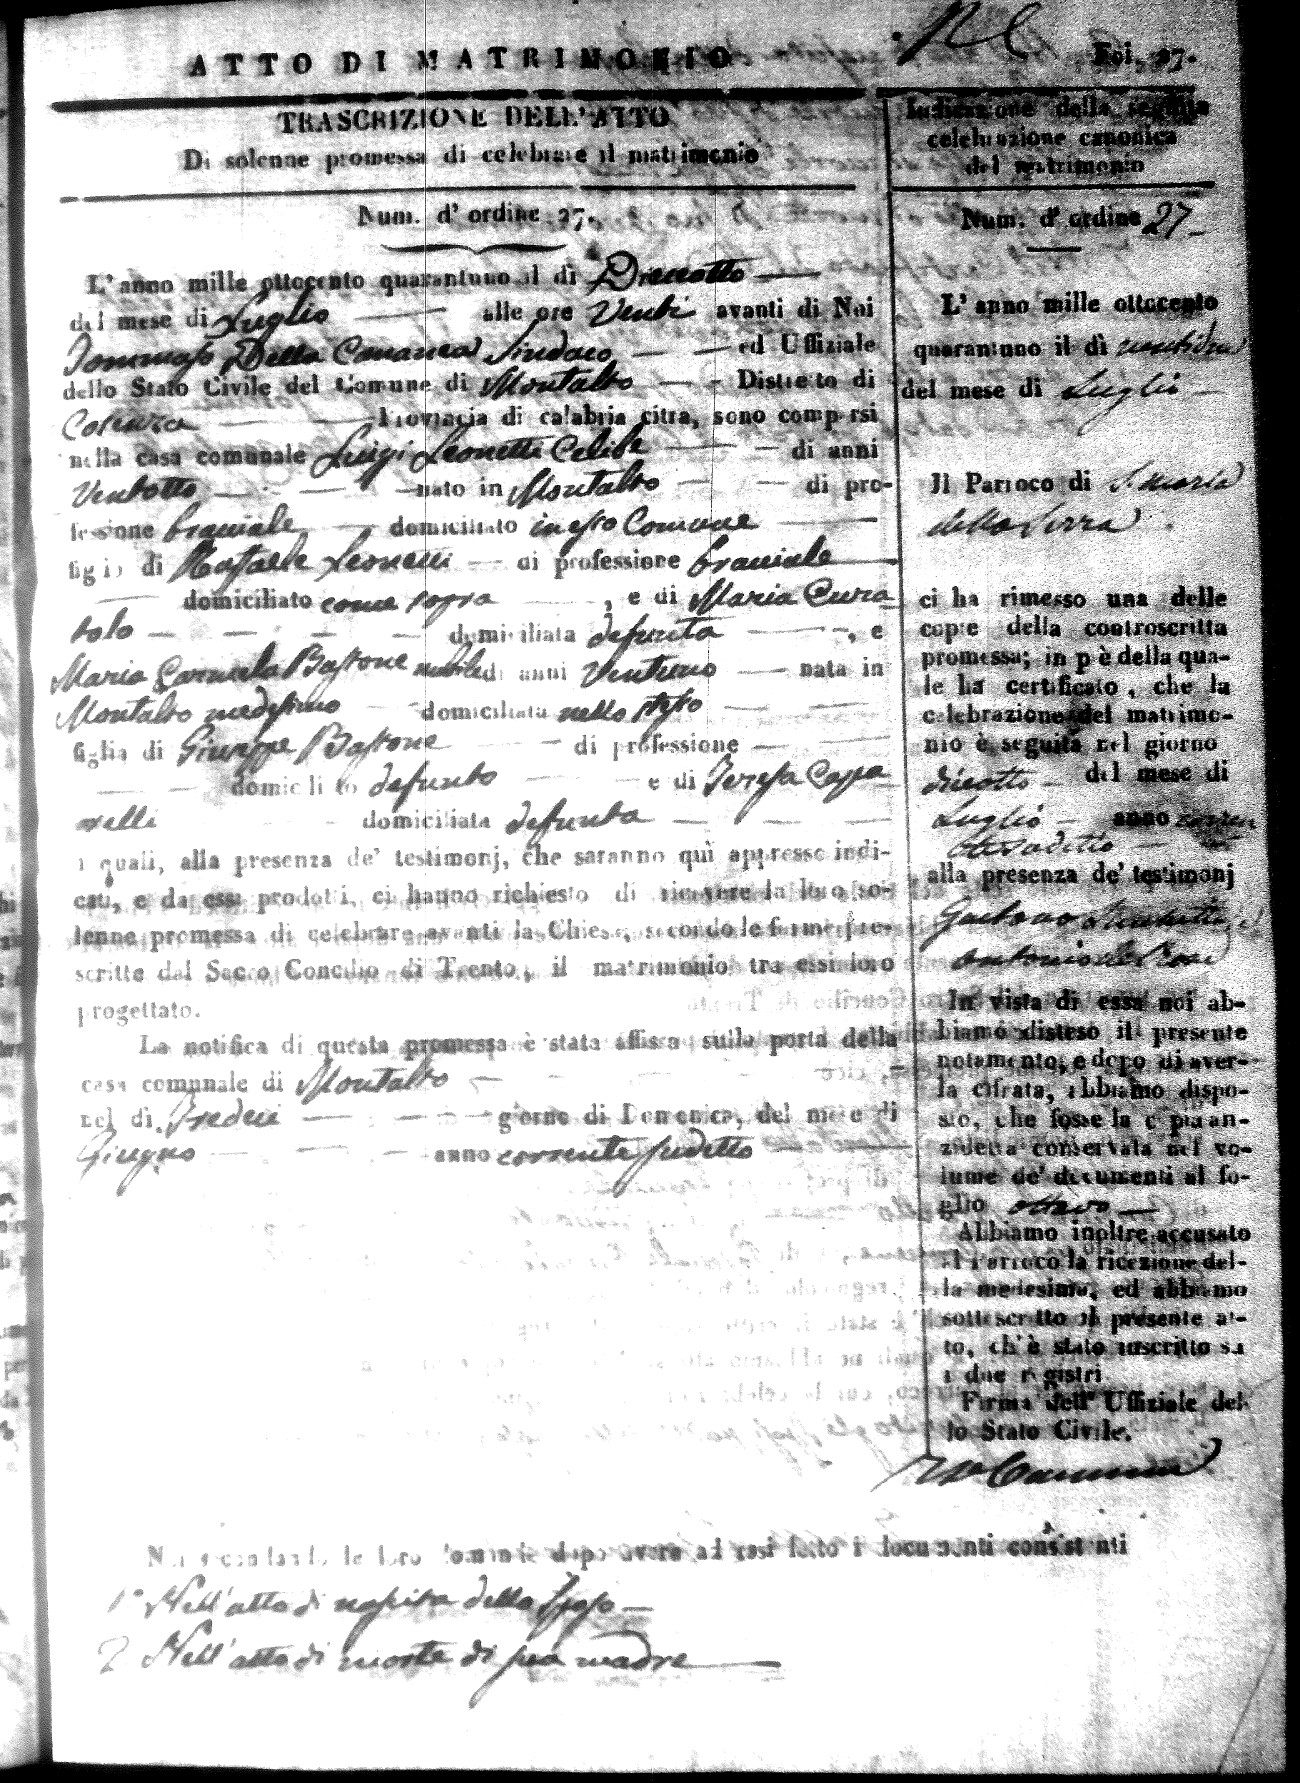 Fol. 27.
ATTO DI MATRIMONIO
TRASCRIZIONE DELL'ATTO
Di solenne promessa di celebrare il matrimonio
Num. d'ordine 27.
L'anno mille ottocento quarantuno il dì Dieciotto
del mese di Luglio alle ore Venti avanti di Noi
Tommaso Della Sindaco ed Uffiziale
dello Stato Civile del Comune di Montalto Distretto di
Cosenza Provincia di calabria citra, sono comparsi
nella casa comunale Luigi Leonetti Celibe di anni
Ventotto nato in Montalto di pro-
fessione bracciale domiciliato in esso Comune
figlio di Raffaele Leonetti di professione bracciale
domiciliato come sopra , e di Maria Cura
tolo domiciliata defunta , e
Maria Carmela Bastone nubile di anni Ventuno nata in
Montalto medesimo domiciliata nello stesso
figlia di Giuseppe Bastone di professione
domiciliato defunto e di Teresa Cappa
relli domiciliata defunta
i quali, alla presenza de' testimonj, che saranno quì appresso indi-
cati, e da essi prodotti, ci hanno richiesto di ricevere la loro so-
lenne promessa di celebrare avanti la Chiesa, secondo le forme pre-
scritte dal Sacro Concilio di Trento, il matrimonio tra essi loro
progettato.
La notifica di questa promessa è stata affissa sulla porta della
casa comunale di Montalto
nel dì Tredeci giorno di Domenica, del mese di
Giugno anno corrente sudetto
Indicazione della seguita
celebrazione canonica
del matrimonio
Num. d'ordine 27
L'anno mille ottocento
quarantuno il dì
del mese di Luglio
Il Parroco di S. Maria
della Serra
ci ha rimesso una delle
copie della controscritta
promessa; in piè della qua-
le ha certificato, che la
celebrazione del matrimo-
nio è seguita nel giorno
diciotto del mese di
Luglio anno
sudetto
alla presenza de' testimonj
Gaetano
Antonio de Rose
In vista di essa noi ab-
biamo disteso il presente
notamento, e dopo di aver-
la cifrata, abbiamo dispo-
sto, che fosse la copia an-
zidetta conservata nel vo-
lume de' documenti al fo-
glio ottavo
Abbiamo inoltre accusato
al Parroco la ricezione del-
la medesima, ed abbiamo
sottoscritto il presente at-
to, ch'è stato inscritto su
i due registri
Firma dell' Uffiziale del-
lo Stato Civile.
Noi secondando le loro domande dopo avere ad essi letto i documenti consistenti
1° Nell'atto di nascita dello sposo
2 Nell'atto di morte di sua madre